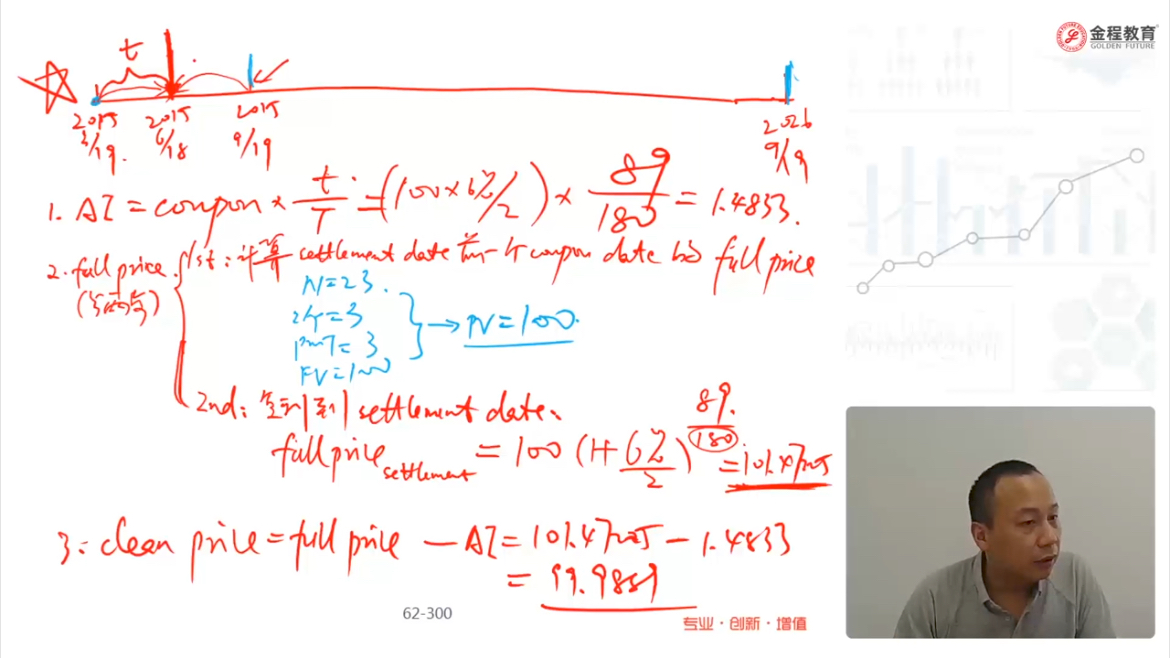 金程教育
GOLDEN FUTURE
t
2015 2015 2015 2026
3/19. 6/18 9/19 9/19
1. AI = coupon × t/T = (100×6%/2) × 89/180 = 1.4833.
2. full price. 1st: 计算 settlement date 前一个 coupon date 的 full price
N=23.
I/Y=3
PMT=3
FV=100
→ PV=100.
2nd: 复利到 settlement date.
full price settlement = 100 (1+6%/2)^89/180 = 101.4725
3: clean price = full price - AI = 101.4725 - 1.4833
= 99.9889
62-300
专业·创新·增值